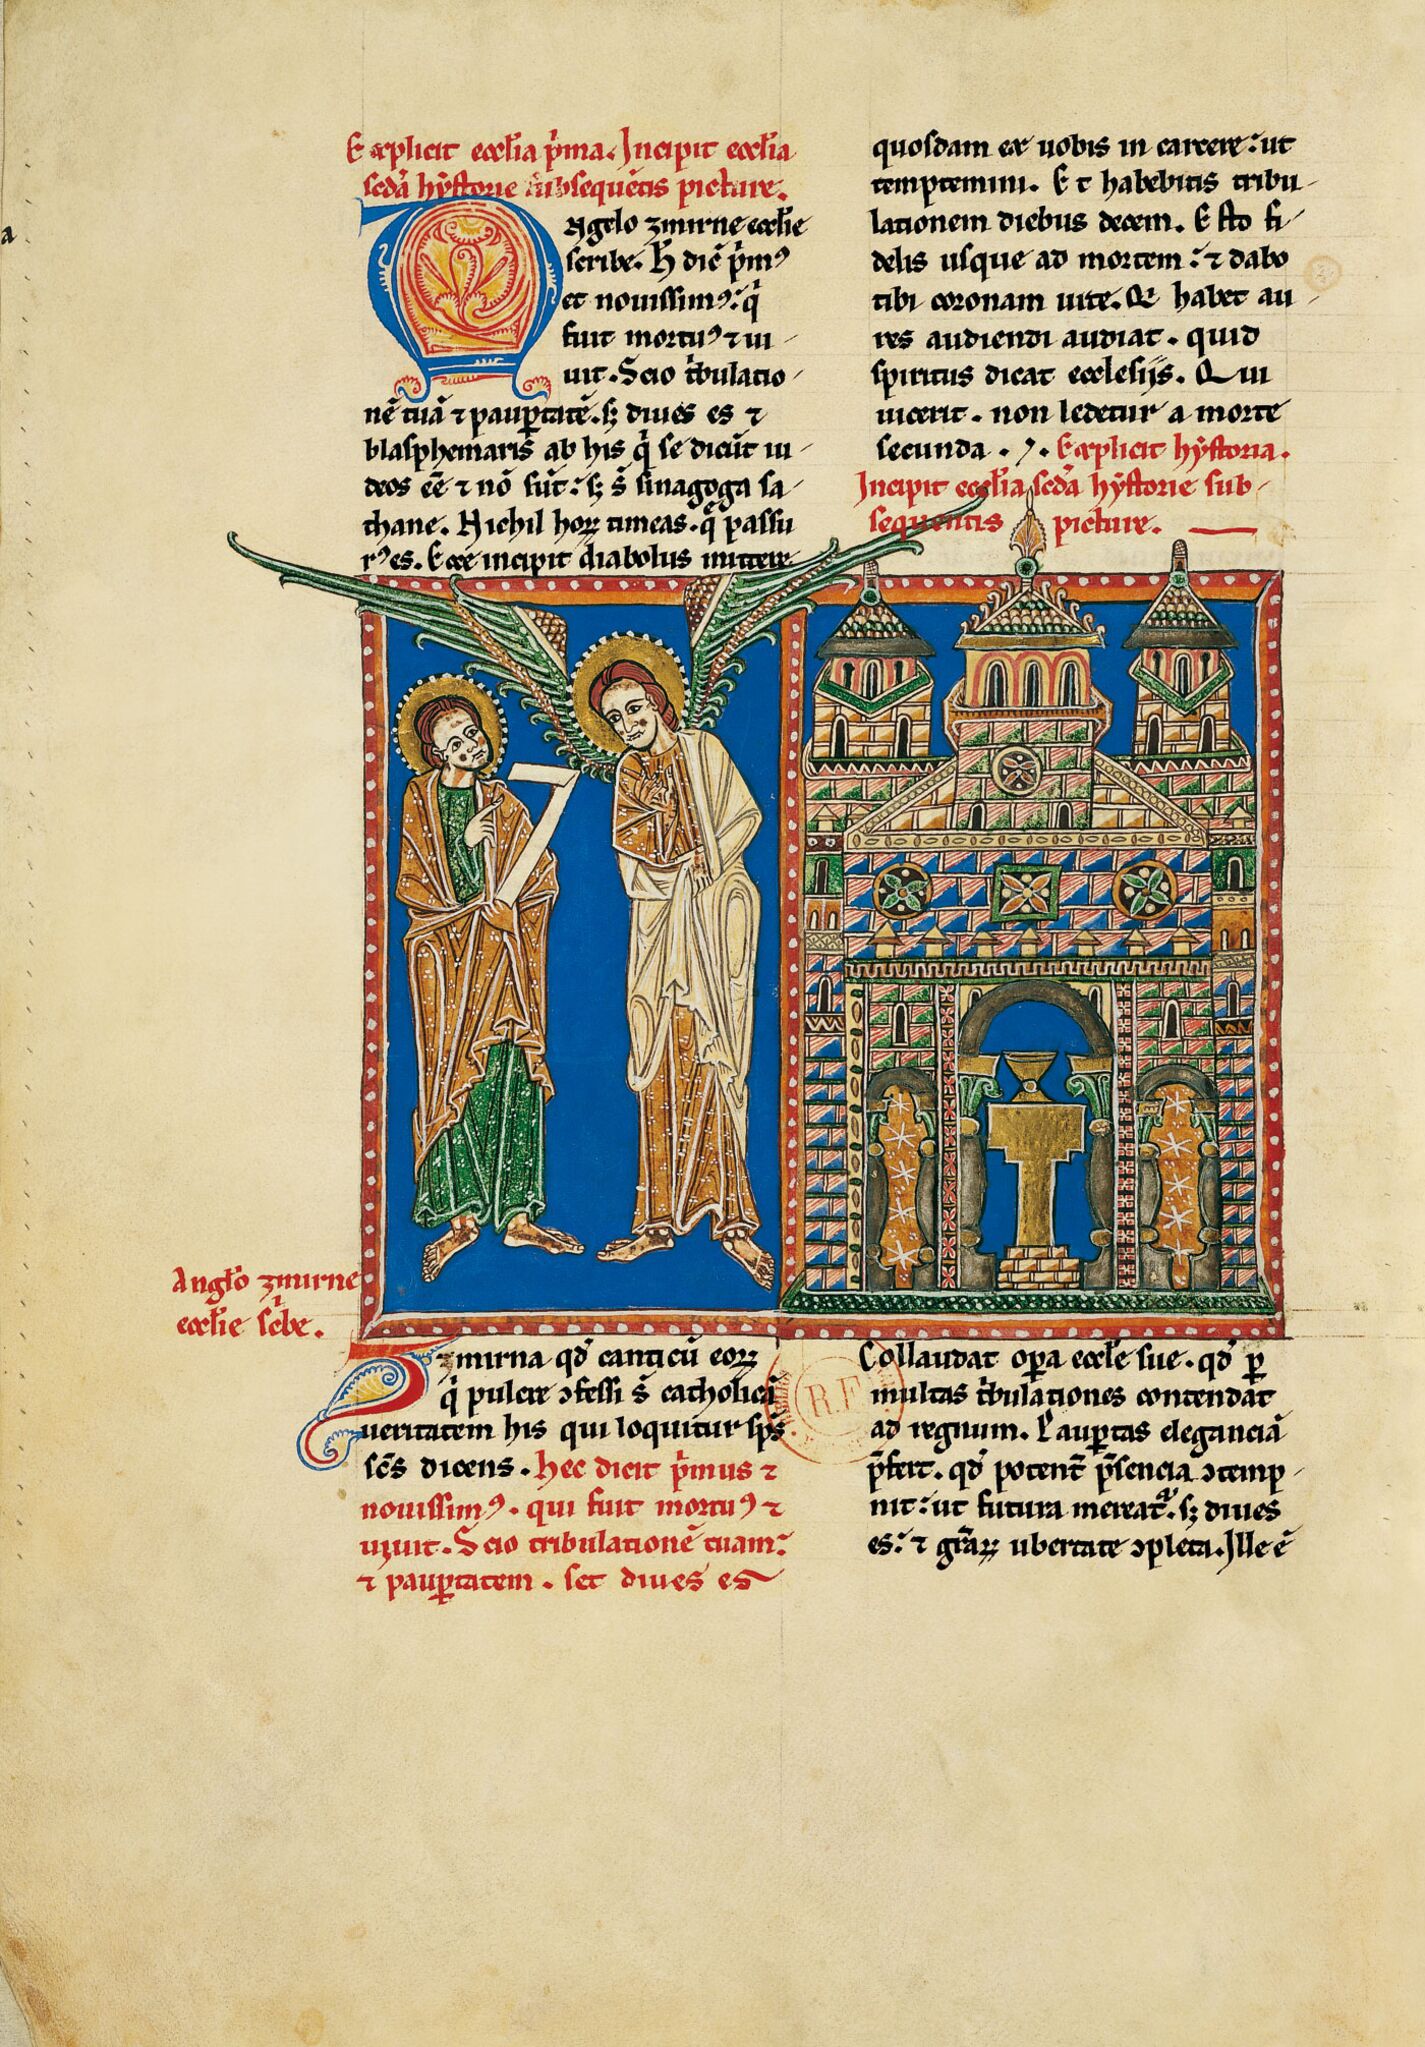 Explicit eccľia p̾ma. Incipit eccľia
scđa hẏstorie subsequẽtis picture.
Angelo zmirne eccľie
scribe. H̄ dič p̃mꝰ
et nouissimꝰ: q̇
fuit mortuꝰ ⁊ ui-
uit. Scio t̾bulatio-
nẽ tuã ⁊ paup̱tatẽ. sꝫ diues es ⁊
blasphemaris ab his q̇ se dicũt iu-
deos eẽ ⁊ nõ sũt: sꝫ s̃ sinagoga sa-
thane. Nichil hoꝝ timeas. q̃ passu
rꝰes. Ecce incipit diabolus mittere
quosdam ex uobis in carcere: ut
temptemini. Et habebitis tribu-
lationem diebus decem. Esto fi-
delis usque ad mortem: ⁊ dabo
tibi coronam uite. Q̇ habet au-
res audiendi audiat. quid
spiritus dicat ecclesijs. Qui
uicerit. non ledetur a morte
secunda. Explicit hẏstoria.
Incipit eccľia scđa hẏstorie sub-
sequentis picture.
Angľo zmirne
eccľie sc̾be.
Zmirna qđ canticũ eoꝝ
q̇ pulcre ꝯfessi s̃ catholicã
ueritatem his qui loquitur sp̃s
sc̃s dicens. hec dicit p̾mus ⁊
nouissimꝰ. qui fuit mortuꝰ ⁊
uiuit. Scio tribulationẽ tuam:
⁊ paup̱tatem. set diues es
Collaudat opera eccľe sue. qđ p̱
multas t̾bulationes contendat
ad regnum. Paup̱tas eleganciã
p̃fert. qđ potent̃ p̃sencia ꝯtemp-
nit: ut futura mereat᷑. sꝫ diues
es: ⁊ gr̃aꝝ ubertate ꝯpleta. Ille ẽ
R.F